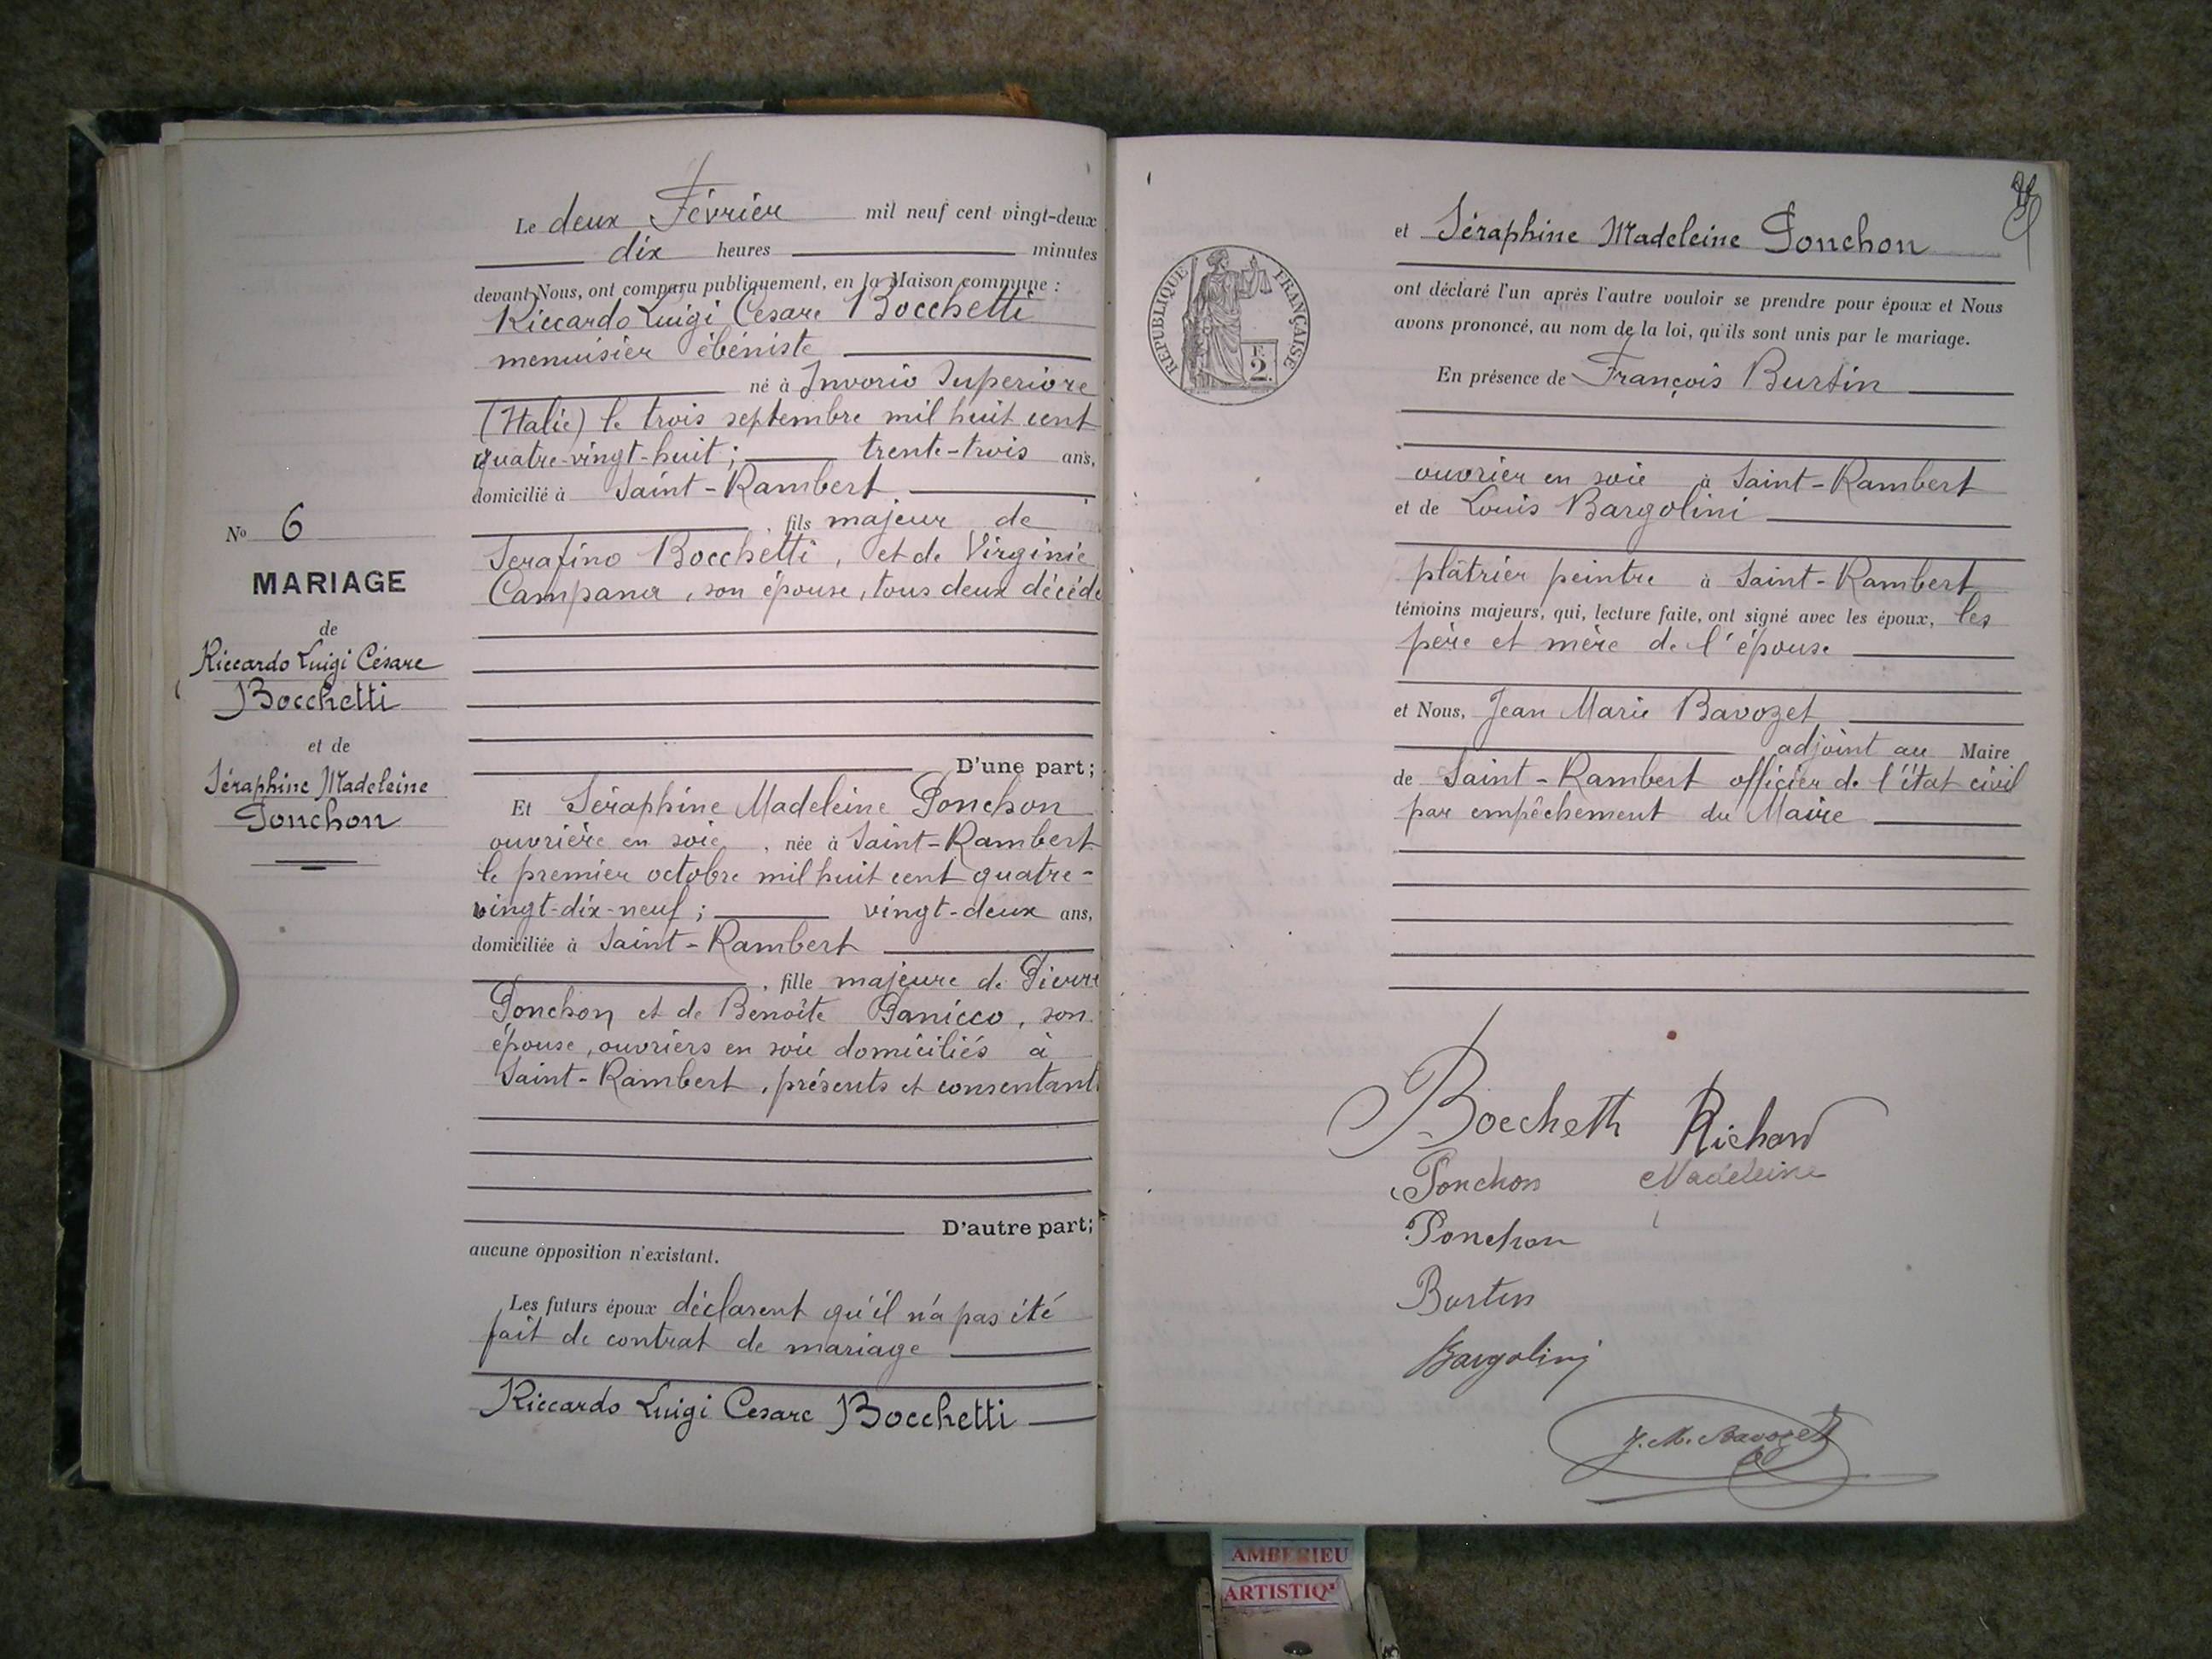 Le deux Février mil neuf cent vingt-deux
dix heures minutes
devant Nous, ont comparu publiquement, en la Maison commune :
Riccardo Luigi Cesare Bocchetti
menuisier ébéniste
né à Invorio Superiore
(Italie) le trois septembre mil huit cent
quatre-vingt-huit ; trente-trois ans,
domicilié à Saint-Rambert
, fils majeur de
Serafino Bocchetti, et de Virginie
Campana, son épouse, tous deux décédé
D'une part ;
Et Séraphine Madeleine Ponchon
ouvrière en soie, née à Saint-Rambert
le premier octobre mil huit cent quatre-
vingt-dix-neuf ; vingt-deux ans,
domiciliée à Saint-Rambert
, fille majeure de Pierre
Ponchon et de Benoîte Panicco, son
épouse, ouvriers en soie domiciliés à
Saint-Rambert, présents et consentant
D'autre part ;
aucune opposition n'existant.
Les futurs époux déclarent qu'il n'a pas été
fait de contrat de mariage
Riccardo Luigi Cesare Bocchetti
No 6
MARIAGE
de
Riccardo Luigi Césare
Bocchetti
et de
Séraphine Madeleine
Ponchon
et Séraphine Madeleine Ponchon
ont déclaré l'un après l'autre vouloir se prendre pour époux et Nous
avons prononcé, au nom de la loi, qu'ils sont unis par le mariage.
En présence de François Burtin
ouvrier en soie à Saint-Rambert
et de Louis Bargolini
plâtrier peintre à Saint-Rambert
témoins majeurs, qui, lecture faite, ont signé avec les époux, les
père et mère de l'épouse
et Nous, Jean Marie Bavozet
adjoint au Maire
de Saint-Rambert officier de l'état civil
par empêchement du Maire
RÉPUBLIQUE FRANÇAISE
F.
2.
Bocchetti Richard
Ponchon Madeleine
Ponchon
Burtin
Bargolini
J. M. Bavozet
AMBERIEU
ARTISTIQ